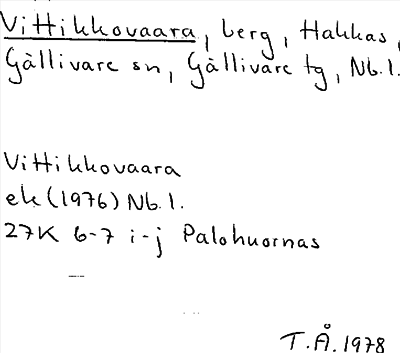 Vittikkovaara, berg, Hakkas,
Gällivare sn, Gällivare tg, Nb.l.
Vittikkovaara
ek (1976) Nb.l.
27K 6-7 i-j Palohuornas
T.Å. 1978